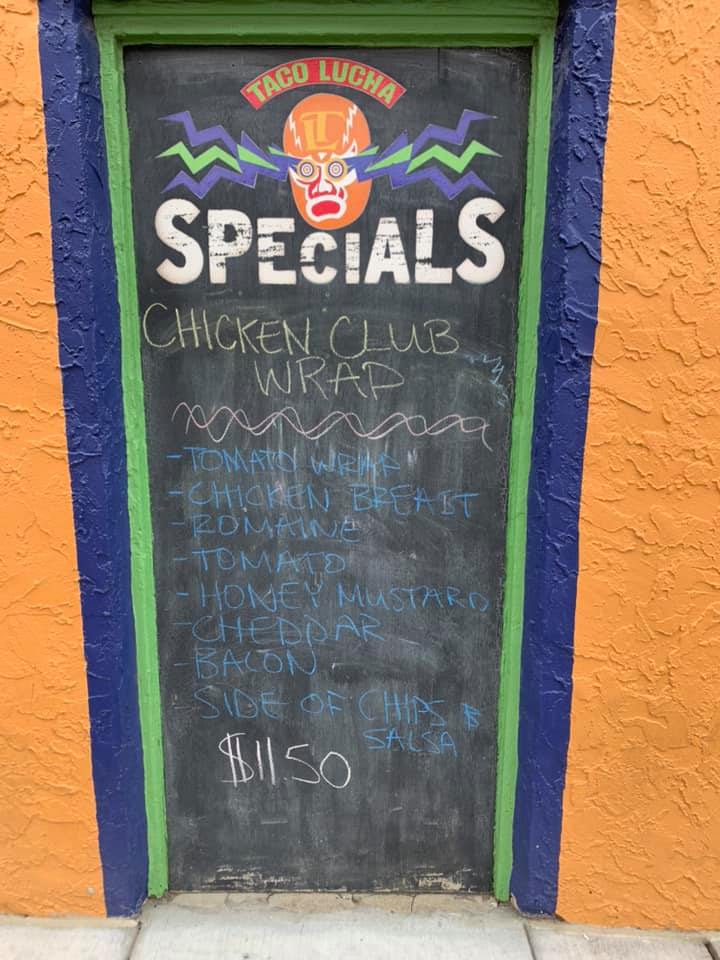 TACO LUCHA
LT
SPECIALS
CHICKEN CLUB
WRAP
-TOMATO WRAP
-CHICKEN BREAST
-ROMAINE
-TOMATO
-HONEY MUSTARD
-CHEDDAR
-BACON
SIDE OF CHIPS &
SALSA
$11.50